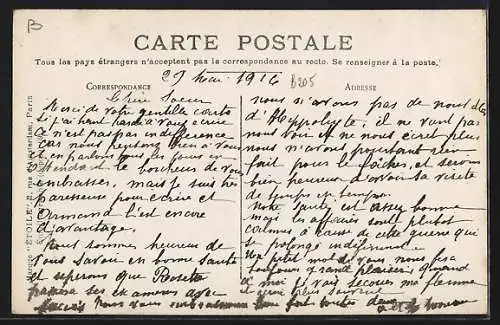 B
CARTE POSTALE
Tous les pays étrangers n'acceptent pas la correspondance au recto. Se renseigner à la poste.
CORRESPONDANCE
ADRESSE
29 Mai 1916
B205
Chère Soeur
Merci de votre gentille carte
si j'ai tant tardé à vous écrire
ce n'est pas par indifférence
car nous pensons bien à vous
et en parlons tous les jours en
attendant le bonheur de vous
embrasser, mais je suis très
paresseuse pour écrire et
Armand l'est encore
davantage.
Nous sommes heureux de
vous savoir en bonne santé
et espérons que Rosette
passera ses examens avec
nous n'avons pas de nouvelles
d'Hyppolyte, il ne vient pas
nous voir et ne nous écrit plus
nous n'avons pourtant rien
fait pour le fâcher, et serions
bien heureux d'avoir sa visite
de temps en temps.
Notre santé est assez bonne
mais les affaires sont plutôt
calmes à cause de cette guerre qui
se prolonge indéfiniment.
Un petit mot de vous nous fera
toujours grand plaisir quand
je vais secouer ma flemme
et
fort toutes deux
ÉTOILE
Paris